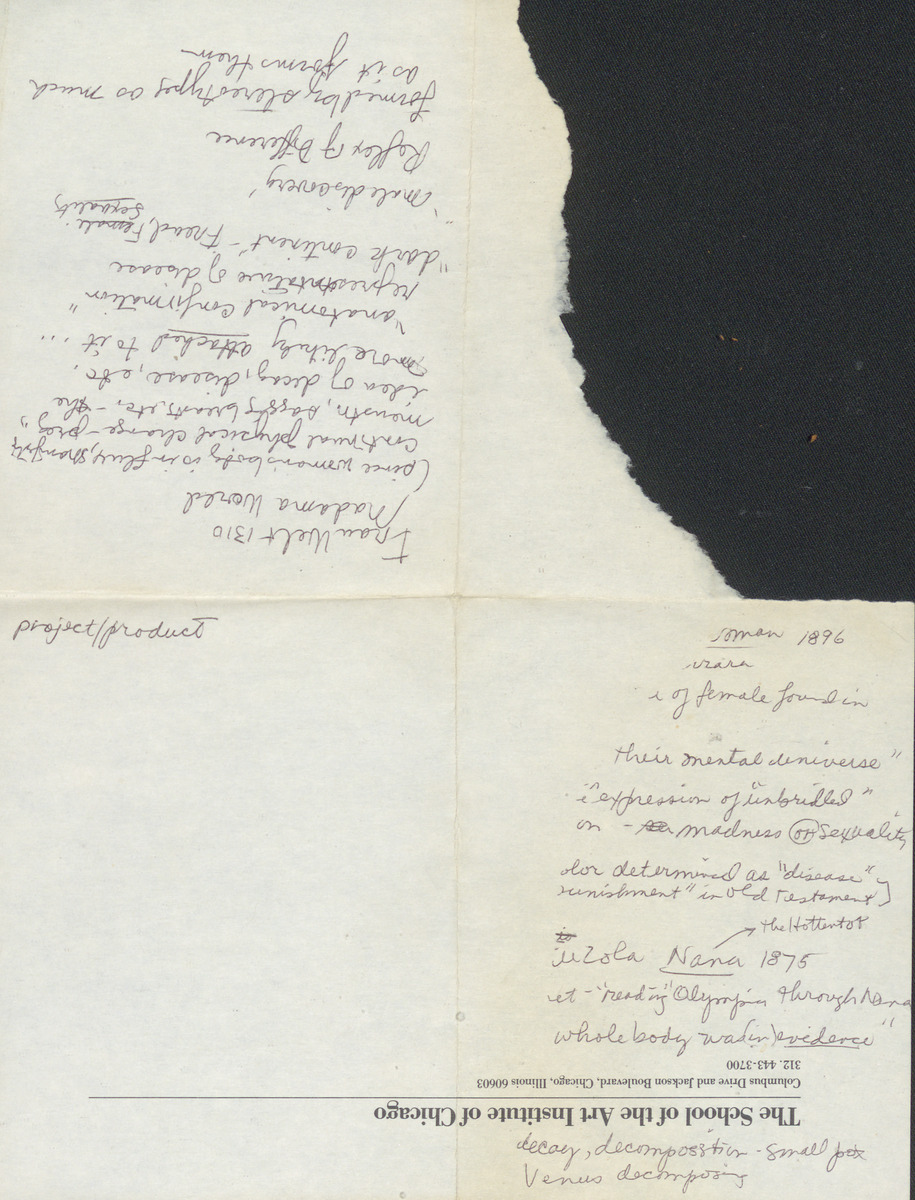 Frau Welt 1310
Madama World
(since woman's body is in flux, 
continual physical change - preg,
menstr, saggy breasts, etc. - the
idea of decay, disease, etc.
more likely attached to it ...
"anatomical confirmation"
representative of disease
"dark continent" - Freud, Female
Sexuality
"male discovery"
Reflex of Difference
formed by stereotypes as much
as it forms them
project/product
oman 1896
of female found in
their mental universe"
"expression of "unbridled"
on - madness or sexuality
olor determined as "disease"
unishment" in Old Testament
the Hottentot
Zola Nana 1875
et - "reading" Olympia through Nana
whole body was (in) evidence"
The School of the Art Institute of Chicago
Columbus Drive and Jackson Boulevard, Chicago, Illinois 60603
312. 443-3700
decay, decomposition - small pox
Venus decomposing